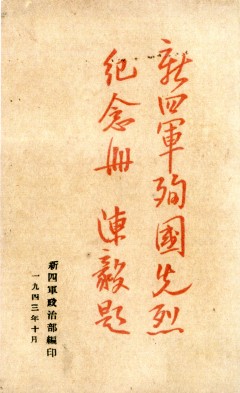 新四軍殉國先烈
紀念冊 陳毅題
新四軍政治部編印
一九四三年十月